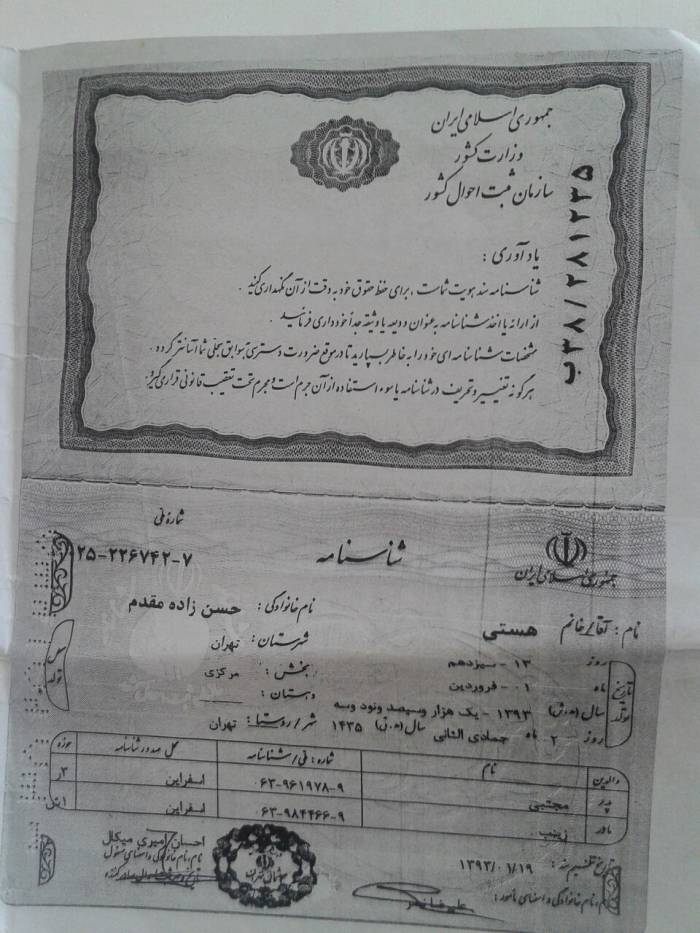 جمهوری اسلامی ایران
وزارت کشور
سازمان ثبت احوال کشور
ب۳۸/۲۸۱۲۳۵
یادآوری :
شناسنامه سند هویت شماست ، برای حفظ حقوق خود به دقت از آن نگهداری کنید .
از ارائه یا اخذ شناسنامه به عنوان ودیعه یا وثیقه جداً خودداری فرمائید .
مشخصات شناسنامه ای خود را به خاطر بسپارید تا در موقع ضرورت دسترسی به سوابق سجلی شما آسانتر گردد .
هر گونه تغییر و تحریف در شناسنامه یا سوء استفاده از آن جرم است و مجرم تحت تعقیب قانونی قرار می گیرد .
شماره ملی
۲۵-۲۲۶۷۴۲-۷
شناسنامه
جمهوری اسلامی ایران
نام : آقا/خانم هستی
نام خانوادگی : حسن زاده مقدم
تاریخ تولد
روز ۱۳ - سیزدهم
ماه ۰۱ - فروردین
سال (ه.ش) ۱۳۹۳ - یک هزار و سیصد و نود و سه
روز ۲ ماه جمادی الثانی سال (ه.ق) ۱۴۳۵
محل تولد
شهرستان : تهران
بخش : مرکزی
دهستان :
شهر/روستا : تهران
والدین نام شماره : ملی/شناسنامه محل صدور شناسنامه حوزه
پدر مجتبی ۶۳-۹۶۱۹۷۸-۹ اسفراین
مادر زینب ۶۳-۹۸۴۴۶۶-۹ اسفراین
تاریخ تنظیم سند : ۱۳۹۳/۰۱/۱۹
نام ، نام خانوادگی و امضای مأمور :
احسان امیری میکال
نام ، نام خانوادگی و امضای مسئول